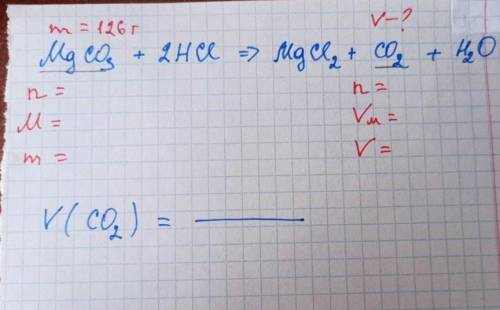 m = 126 г V - ?
MgCO₃ + 2HCl => MgCl₂ + CO₂ + H₂O
n = n =
M = Vм =
m = V =
V(CO₂) = ————